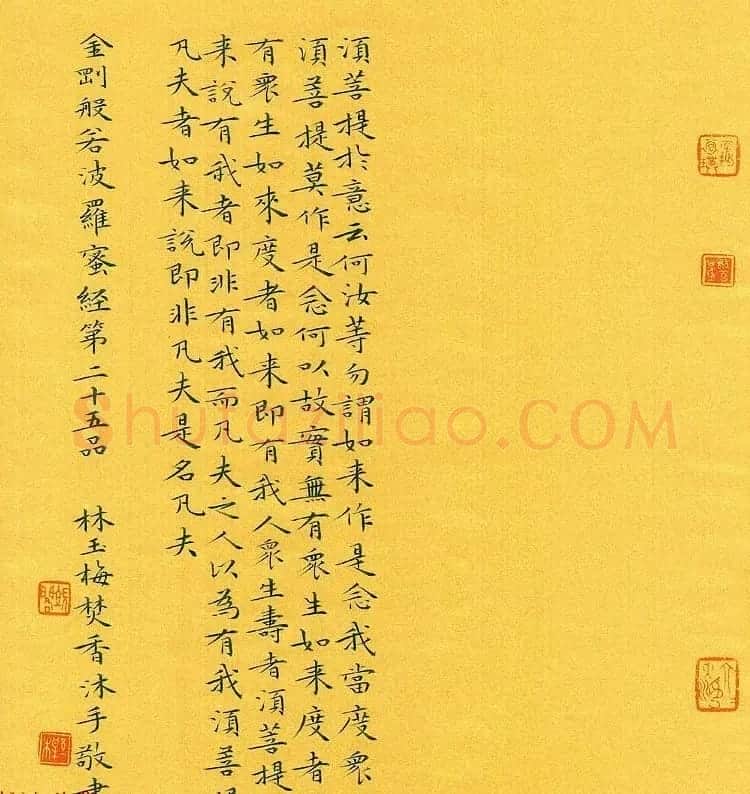 須菩提於意云何汝等勿謂如来作是念我當度衆
須菩提莫作是念何以故實無有衆生如来度者
有衆生如來度者如来即有我人衆生壽者須菩提
来說有我者即非有我而凡夫之人以為有我須菩
凡夫者如来說即非凡夫是名凡夫
金剛般若波羅蜜経第二十五品 林玉梅焚香沐手敬
Shufaziliao.COM